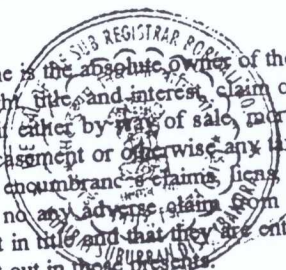 SUB REGISTRAR BORIVALI NO
ne is the absolute owner of the
ht, title, and interest, claim o
either by way of sale, mor
easement or otherwise any
encumbrances claims, liens,
no any adverse claim from
t in title and that they are ent
out in these presents.